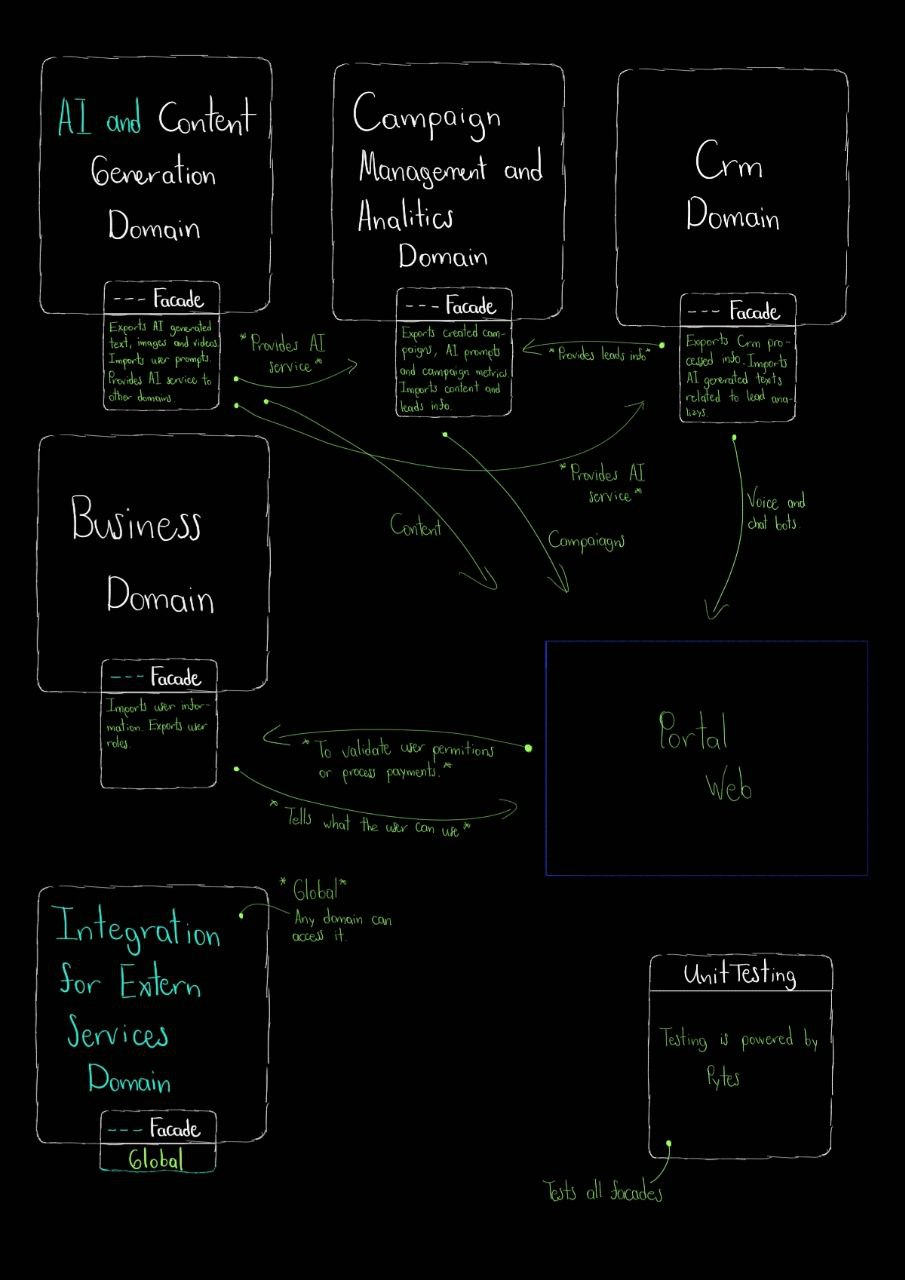 AI and Content
Generation
Domain
--- Facade
Exports AI generated
text, images and videos.
Imports user prompts.
Provides AI service to
other domains.
Campaign
Management and
Analitics
Domain
--- Facade
Exports created cam-
paigns, AI prompts
and campaign metrics.
Imports content and
leads info.
Crm
Domain
--- Facade
Exports Crm pro-
cessed info. Imports
AI generated texts
related to lead ana-
lisys.
*Provides AI
service*
*Provides leads info*
*Provides AI
service*
Content
Campaiagns
Voice and
chat bots.
Business
Domain
--- Facade
Imports user infor-
mation. Exports user
roles.
* To validate user permitions
or process payments.*
* Tells what the user can use*
Portal
Web
Integration
for Extern
Services
Domain
--- Facade
Global
*Global*
Any domain can
access it.
UnitTesting
Testing is powered by
Pytes
Tests all facades